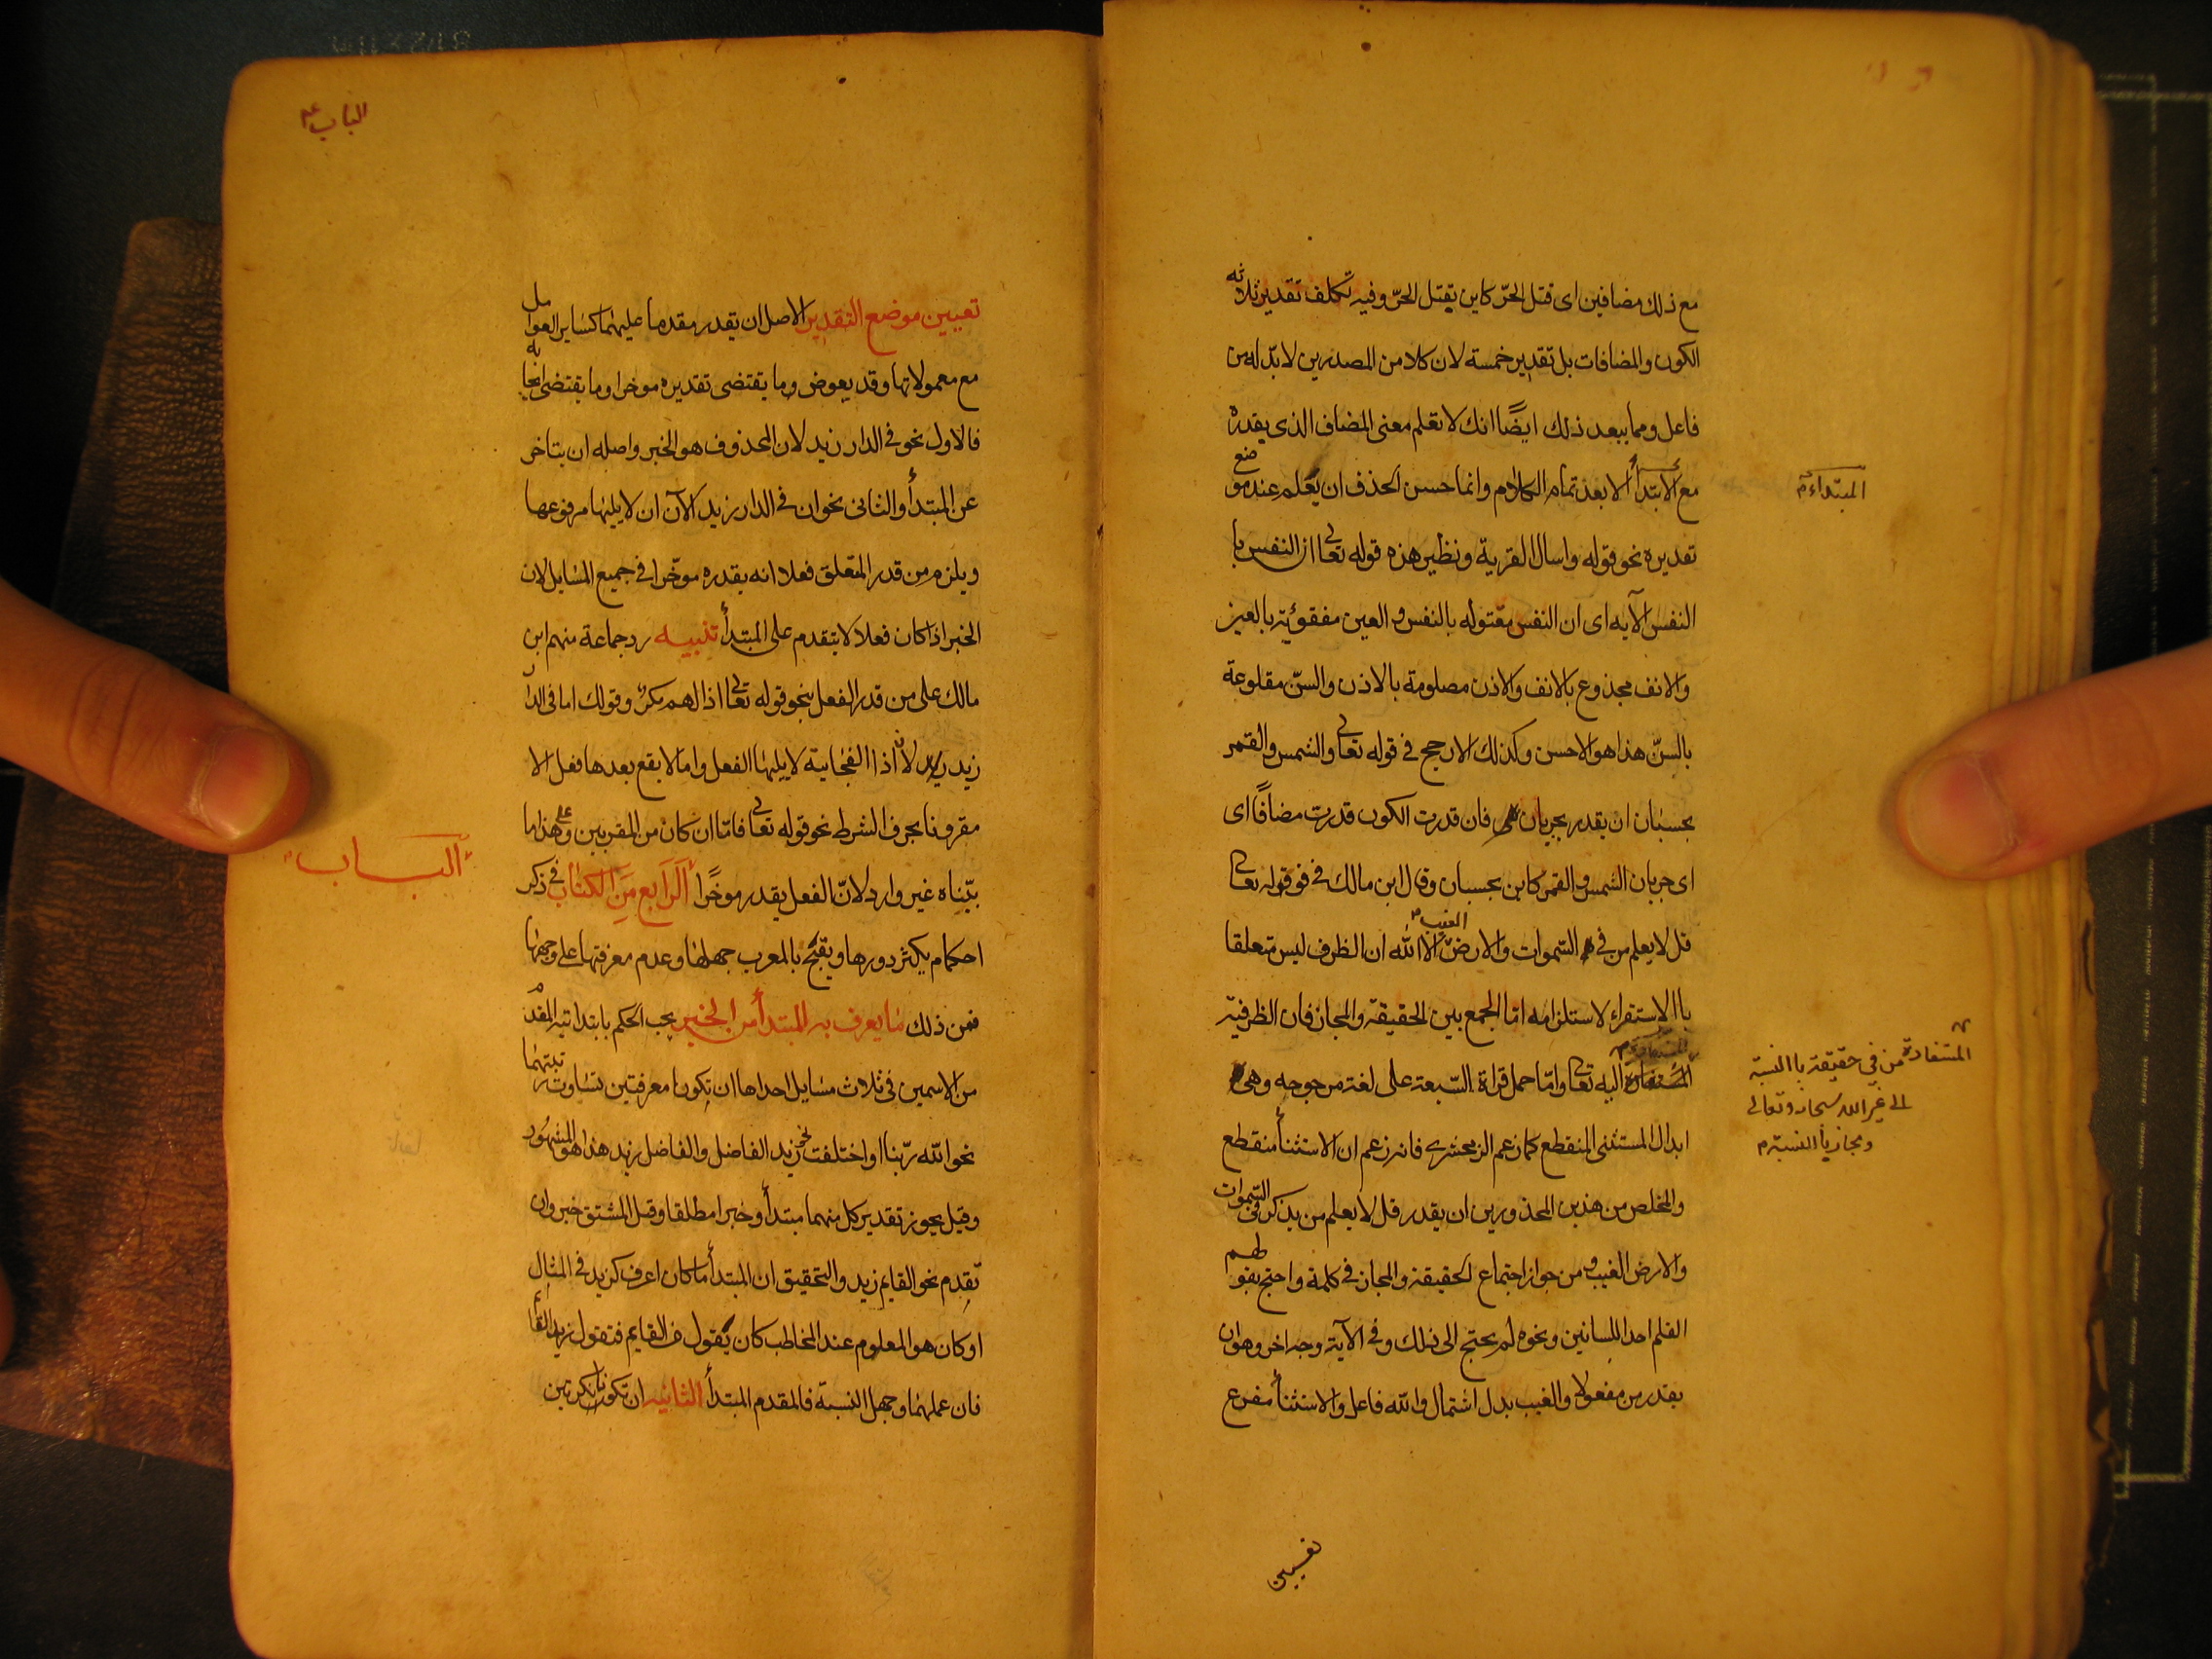 مع ذلك مضافين اى قتل الحرّ كاين يقتل الحرّ وفيه تكلف تقدير ثلاثه
الكون والمضافات بل تقدير خمسة لان كلا من المصدرين لا بدّ له من
فاعل ومما يبعد ذلك ايضًا انك لا تعلم معنى المضاف الذى يقدره
مع الابتدأ الا بعد تمام الكلام وانما حسن الحذف ان يعلم عند موضع
المبتداء م
تقديره نحو قوله واسال القرية ونظير هذه قوله تعالى ان النفس با
النفس الآيه اى ان النفس مقتوله بالنفس و العين مفقوئية بالعين
والانف مجذوع بالانف والاذن مصلومة بالاذن والسنّ مقلوعة
بالسنّ هذا هو الاحسن وكذلك الارجح فى قوله تعالى والشمس والقمر
بحسبان ان يقدر يجريان فان قدرت الكون قدرت مضافًا اى
اى جريان الشمس و القمر كاين بحسبان وقال ابن مالك فى قوله تعالى
قل لا يعلم من فى السموات والارض الغيب الا الله ان الظرف ليس متعلقا
باالاستقراء لاستلزامه امّا الجمع بين الحقيقة والمجاز فان الظرفية
المستفادة من فى حقيقة باالنسبة
الى غير الله سبحانه وتعالى
ومجاز باالنسبة م
المستفادة اليه تعالى وامّا حمل قراة السّبعة على لغة مرجوحه وهى
ابدال المستثنى المنقطع كما زعم الزمخشرى فانه زعم ان الاستثنأ منقطع
والمخلص من هذين المحذورين ان يقدر قل لا يعلم من يذكر فى السموات
والارض الغيب و من جواز اجتماع الحقيقة والمجاز فى كلمة واحتج بقولهم
القلم احد اللسانين ونحوه لم يحتج الى ذلك وفى الآية وجه اخر وهو ان
يقدر من مفعولا والغيب بدل اشتمال والله فاعل والاستثنأ مفرغ
الباب
تعيين موضع التقدير الاصل ان تقدر مقدما عليهما كسَاير العوامل
مع معمولاتها وقد يعوض وما يقتضى تقديره موخرا وما يقتضى ايجابه
فالاول نحو فى الدار زيد لان المحذوف هو الخبر واصله ان يتاخر
عن المبتدأ والثانى نحو ان فى الدار زيد الآن ان لا يليها مرفوعها
ويلزم من قدر المتعلق فعلا انه يقدره موخّرا فى جميع المسَايل لان
الخبر اذا كان فعلا لا يتقدم على المبتدأ تنبيه رد جماعة منهم ابن
مالك على من قدر الفعل بنحو قوله تعالى اذا لهم مكر وقولك اما فى الدار
زيد لانّ اذا الفجايية لا يليها الفعل واما لا يقع بعدها فعل الا
مقرونا بحرف الشرط نحو قوله تعالى فامّا ان كان من المقربين وعلى هذا ما
الباب
بيّناه غير وارد لانّ الفعل يقدر موخرًا الرابع من الكتاب فى ذكر
احكام يكثر دورها ويقبح بالمعرب جهلها وعدم معرفتها على وجهها
فمن ذلك مَا يعرف به المبتدأ من الخبر يجب الحكم بابتدايية المقدم
من الاسمين فى ثلاث مسَايل احداها ان يكونا معرفتين تساوت رتبتهما
نحو الله ربّنا او اختلفت نحو زيد الفاضل والفاضل زيد هذا هو المشهُور
وقيل يجوز تقدير كل منهما مبتدأ وخبرا مطلقا وقيل المشتق خبر وان
تقدم نحو القايم زيد والتحقيق ان المبتدأ ما كان اعرف كزيد فى المثال
او كان هو المعلوم عند المخاطب كان يقول من القايم فتقول زيد القا
فان علمهما وجهل النسبة فالمقدم المبتدأ الثانيه ان تكونا نكرتين